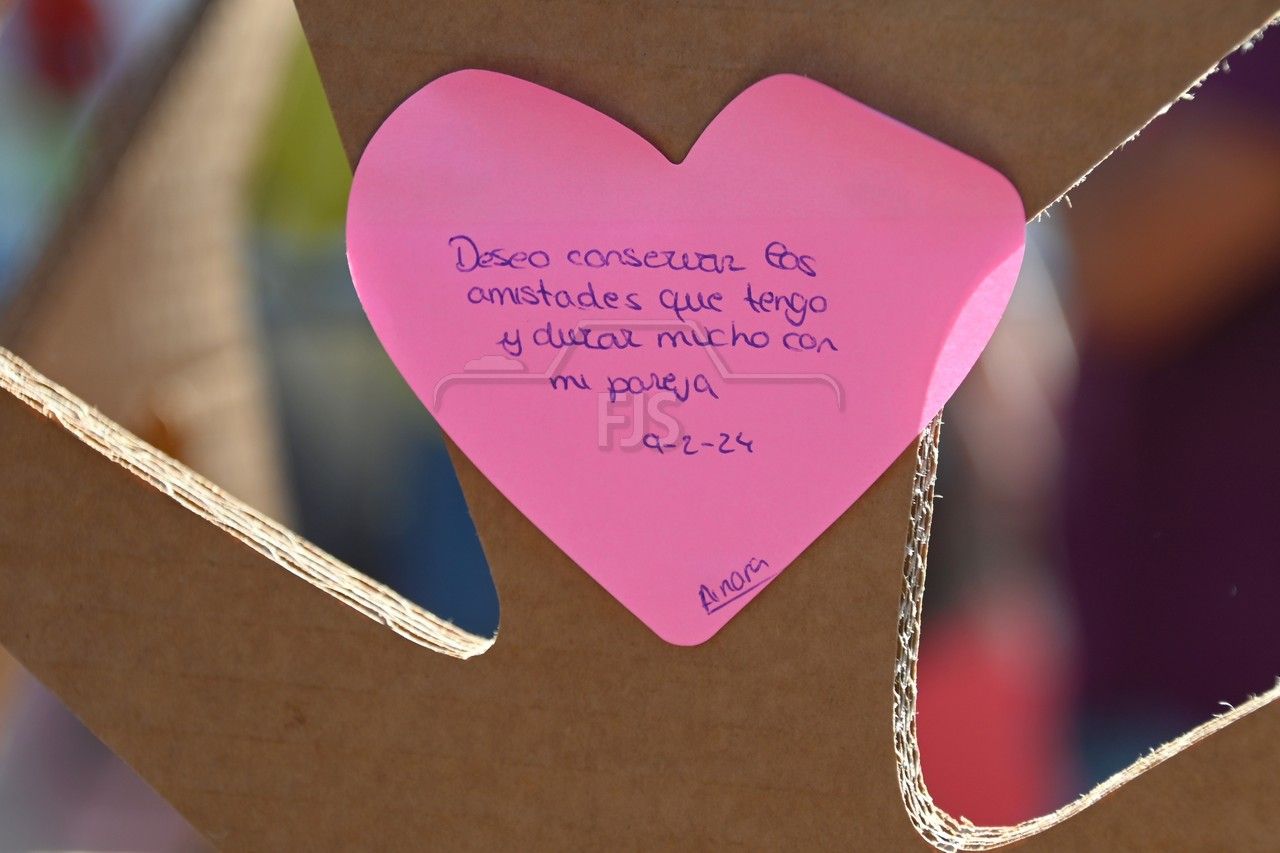 Deseo conservar los
amistades que tengo
y durar mucho con
mi pareja
FJS
9-2-24
Ainara